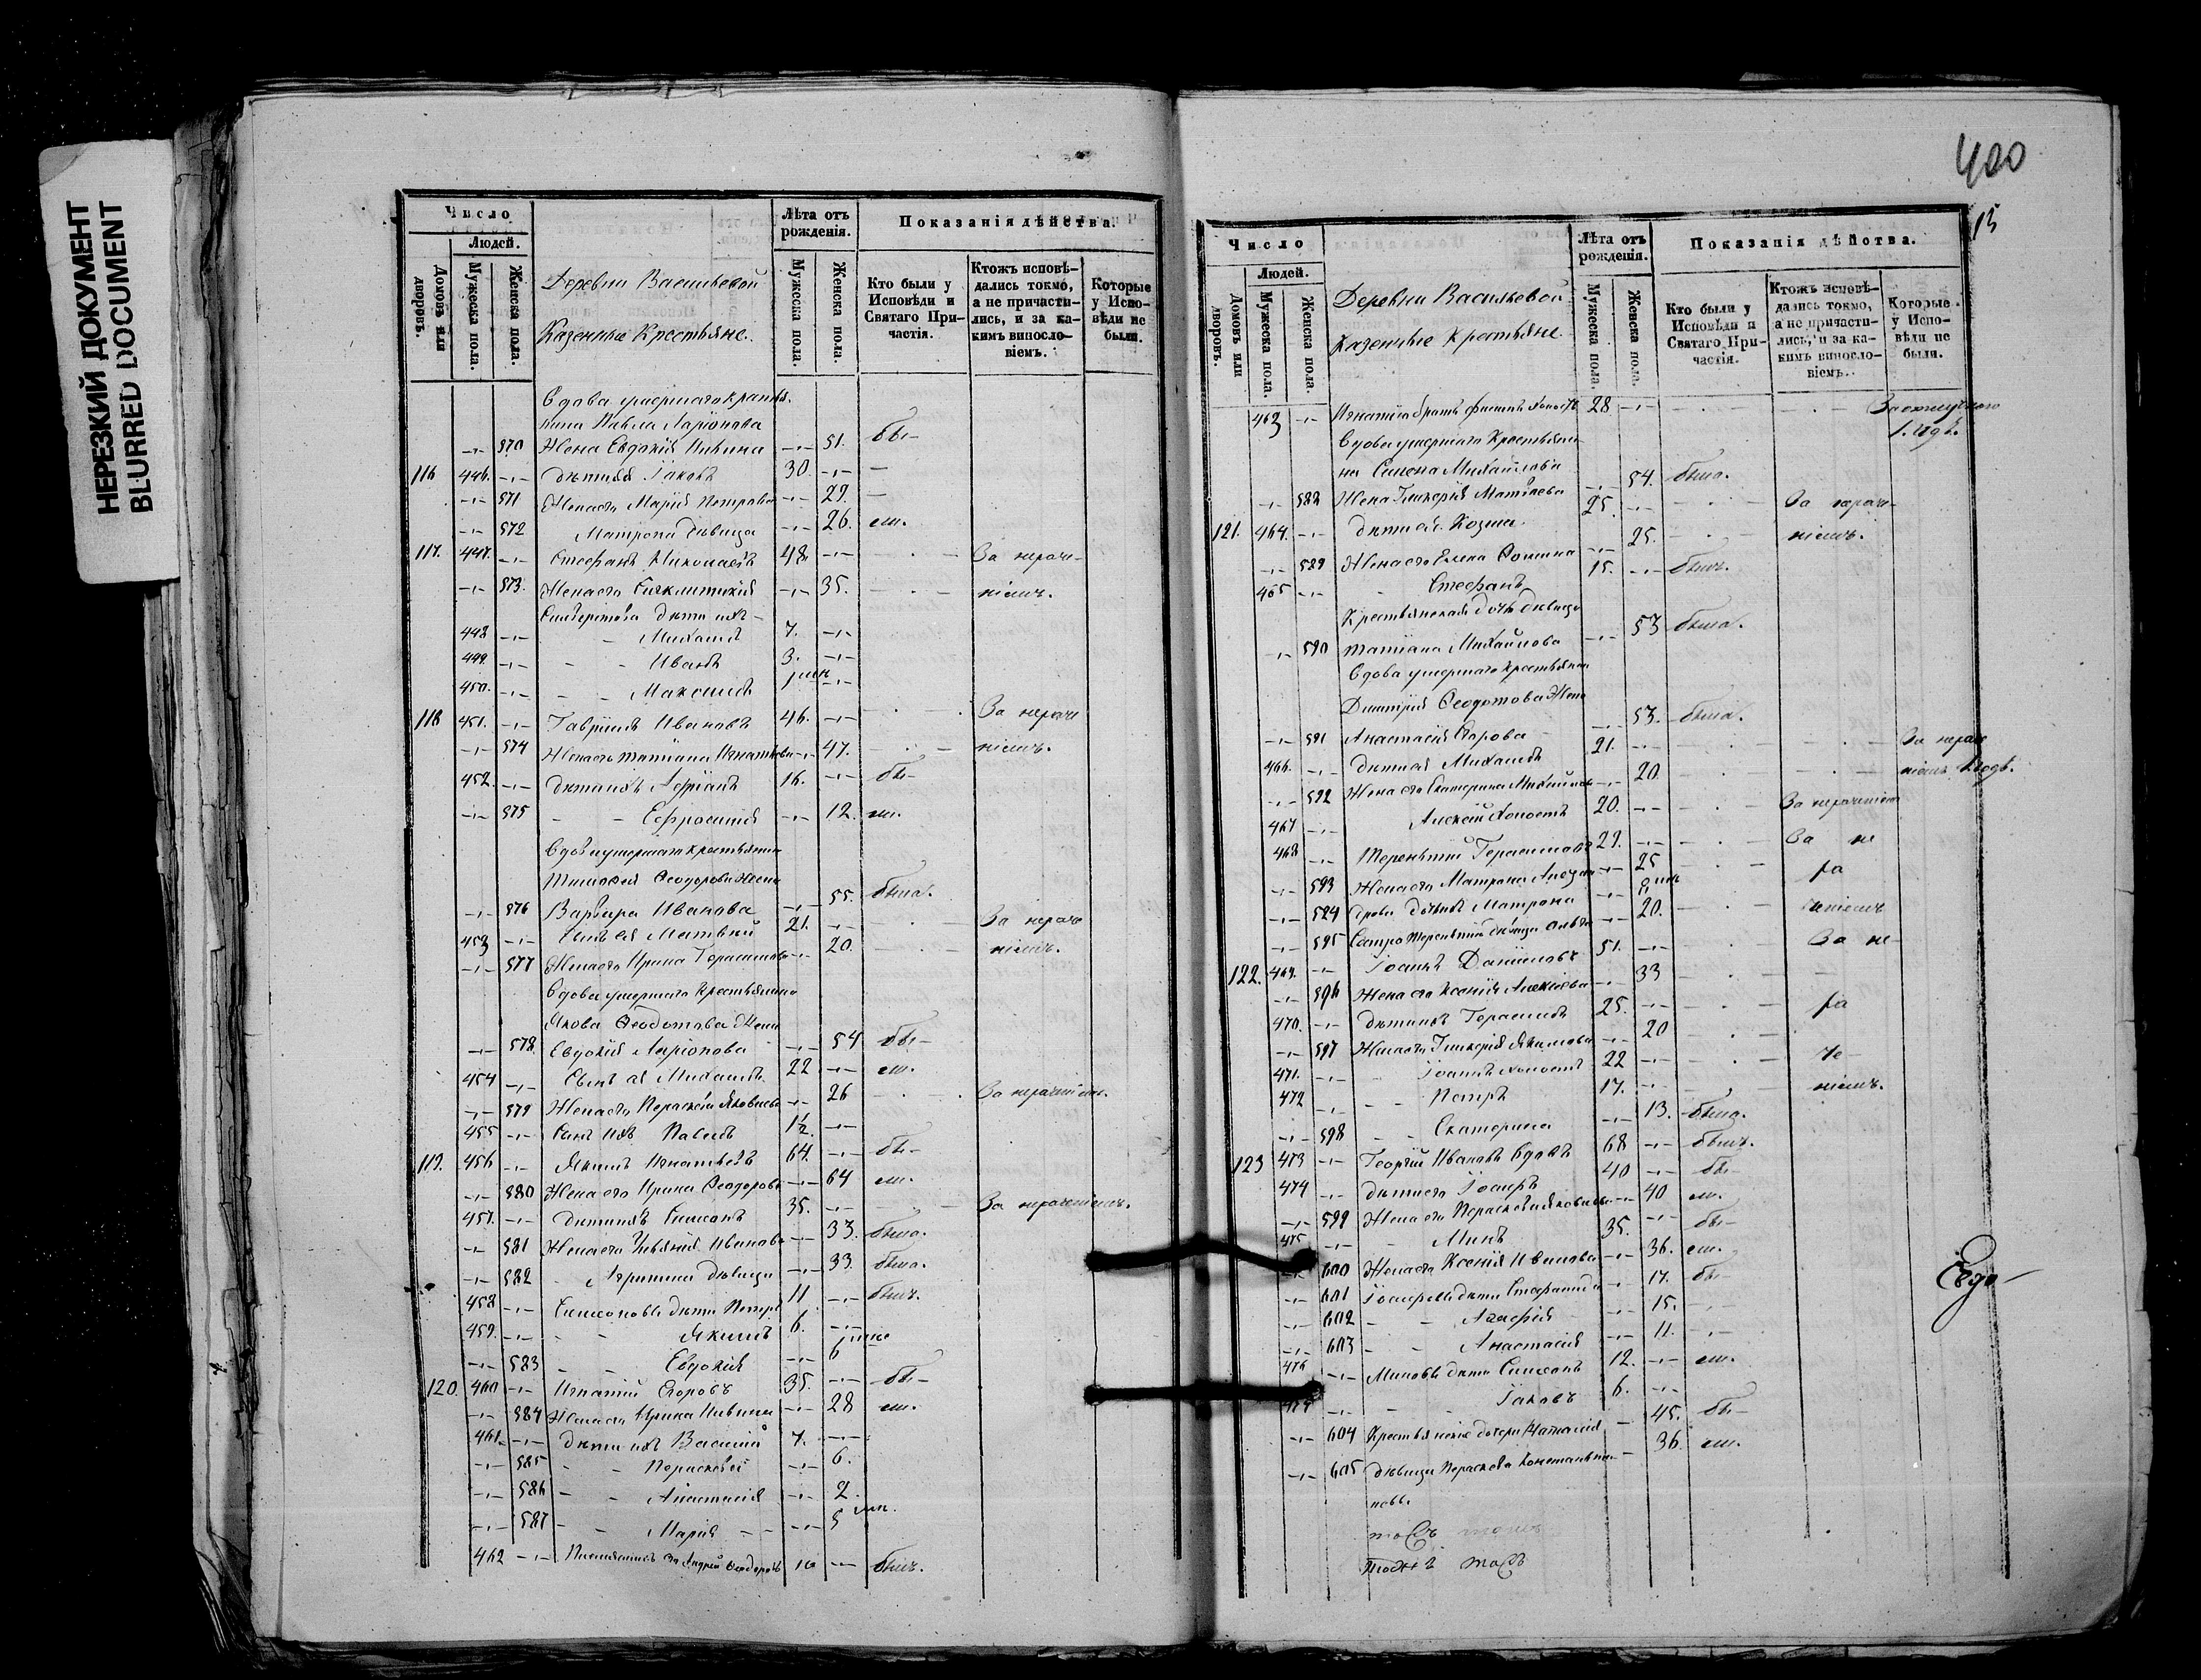 НЕРЕЗКИЙ ДОКУМЕНТ
BLURRED DOCUMENT
Число
Людей.
Домовъ или дворовъ.
Мужеска пола.
Женска пола.
Деревни Васильевой
Казенные Крестьяне.
Лѣта отъ рожденія.
Мужеска пола.
Женска пола.
Показанія дѣйства.
Кто были у Исповѣди и Святаго Причастія.
Ктожъ исповѣдались токмо, а не причастились, и за какимъ винословіемъ.
Которые у Исповѣди не были.
Вдова умершаго крестья
нина Павла Ларіонова
-"- 570 Жена Евдокія -"- 51. бы-
116 446. -"- Дѣти ея Іаковъ 30. -"- —
-"- 571 Жена его Марія Петрова -"- 29. —
-"- 572 Матрона дѣвица -"- 26. ли.
117. 447. -"- Стефанъ Николаевъ 48 -"- За нераче-
-"- 573. Жена его -"- 35. ніемъ.
дѣти ихъ -
448 -"- Михаилъ 7. -"-
449. -"- Иванъ 3. -"-
450. -"- Максимъ -"-
118 451. -"- Гавріилъ Ивановъ 46. -"- За нераче
-"- 574 Жена его Татіана Игнатьева -"- 47. ніемъ.
452. -"- Дѣти ихъ Адріанъ 16. -"- бы-
-"- 575 Ефросинія -"- 12. ли.
Вдова умершаго крестьянина
Тимофея Ѳеодорова жена
-"- 576 Варвара Иванова -"- 55. была.
453 -"- Сынъ ея Матвѣй 21. -"- За нераче
-"- 577 Жена его Ирина Герасимова -"- 20. ніемъ.
Вдова умершаго Крестьянина
Якова Ѳеодотова Жена
-"- 578. Евдокія Ларіонова -"- 54 бы-
454 -"- Сынъ ея Михаилъ 22 -"- ли.
-"- 579 Жена его Параскевія Яковлева -"- 26 За нераченіемъ.
455 -"- Сынъ ихъ Павелъ 1½. -"-
119. 456 -"- Якимъ Игнатьевъ 64. -"- бы-
-"- 580 Жена его Ирина Ѳеодорова -"- 64 ли.
457. -"- Дѣти ихъ Симеонъ 35. -"- За нераченіемъ.
-"- 581 Жена его Іуліанія Иванова -"- 33. была.
-"- 582 Агрипина дѣвица -"- 33. была.
458 -"- Симеоновы дѣти Петръ 11 -"- былъ.
459. -"- Якимъ 6. -"-
-"- 583 Евдокія -"- 6
120. 460 -"- Игнатій Егоровъ 35. -"- бы-
-"- 584 Жена его Ирина -"- 28 ли.
461. -"- Дѣти ихъ Василій 7. -"-
-"- 585 Параскевія -"- 6.
-"- 586 Анастасія -"- 2.
-"- 587 Марія -"- 5
462 -"- Андрей Ѳеодоровъ 16 -"- былъ.
400
15
Число
Людей.
Домовъ или дворовъ.
Мужеска пола.
Женска пола.
Деревни Васильевой
Казенные Крестьяне.
Лѣта отъ рожденія.
Мужеска пола.
Женска пола.
Показанія дѣйства.
Кто были у Исповѣди и Святаго Причастія.
Ктожъ исповѣдались токмо, а не причастились, и за какимъ винословіемъ.
Которые у Исповѣди не были.
463 -"- Игнатія братъ Филипъ холостъ 28 -"- За отлучкою
1. годъ.
Вдова умершаго Крестьяни-
на Симона Михайлова
-"- 588 Жена Гликерія Матвѣева 54. была.
121. 464. -"- Дѣти ея Козма 25. -"- За нераче-
-"- 589 Жена его Елена Ѳомина -"- 25. ніемъ.
465 -"- Стефанъ 15. -"- былъ.
Крестьянская дочь дѣвица
-"- 590 Татіана Михайлова -"- 53 была.
Вдова умершаго крестьянина
Димитрія Ѳеодотова Жена
-"- 591 Анастасія Егорова -"- 53. была.
466. -"- Дѣти ея Михаилъ 21. -"- За нераче
-"- 592 Жена его Екатерина Михайлова -"- 20. ніемъ годъ.
467 -"- Алексій Холостъ 20. -"- За нераченіемъ
468 -"- Терентій Герасимовъ 29. -"- За не
-"- 593 Жена его Матрона -"- 25 ра
-"- 594 дочь ихъ Матрона -"- ченіемъ
-"- 595 Сестра Терентія дѣвица -"- 20.
122. 469. -"- Іоаннъ Даниловъ 51. -"- За не-
-"- 596 Жена его Ксенія Алексіева -"- 33
470. -"- Дѣти ихъ Герасимъ 25. -"- ра
-"- 597 Жена его Гликерія Якимова -"- 20
471. -"- Іоаннъ холостъ 22 -"- че-
472 -"- Петръ 17. -"- ніемъ.
-"- 598 Екатерина -"- 13. была.
123 473 -"- Георгій Ивановъ вдовъ 68 -"- былъ.
474 -"- Дѣти его Іосифъ 40 -"- бы-
-"- 599 Жена его Параскевія Яковлева -"- 40 ли.
475 -"- Минъ 35. -"- бы-
-"- 600 Жена его Ксенія Иванова -"- 36. ли.
-"- 601 Іосифовы дѣти Стефанида -"- 17. бы-
-"- 602 Агафія -"- 15.
-"- 603 Анастасія -"- 11.
476 -"- Миновы дѣти Симеонъ 12. -"- ли.
477 -"- Іаковъ 6. -"-
-"- 604 Крестьянскіе дочери Наталія 45. бы-
-"- 605 дѣвицы Параскева Константи- 36. ли.
новы.